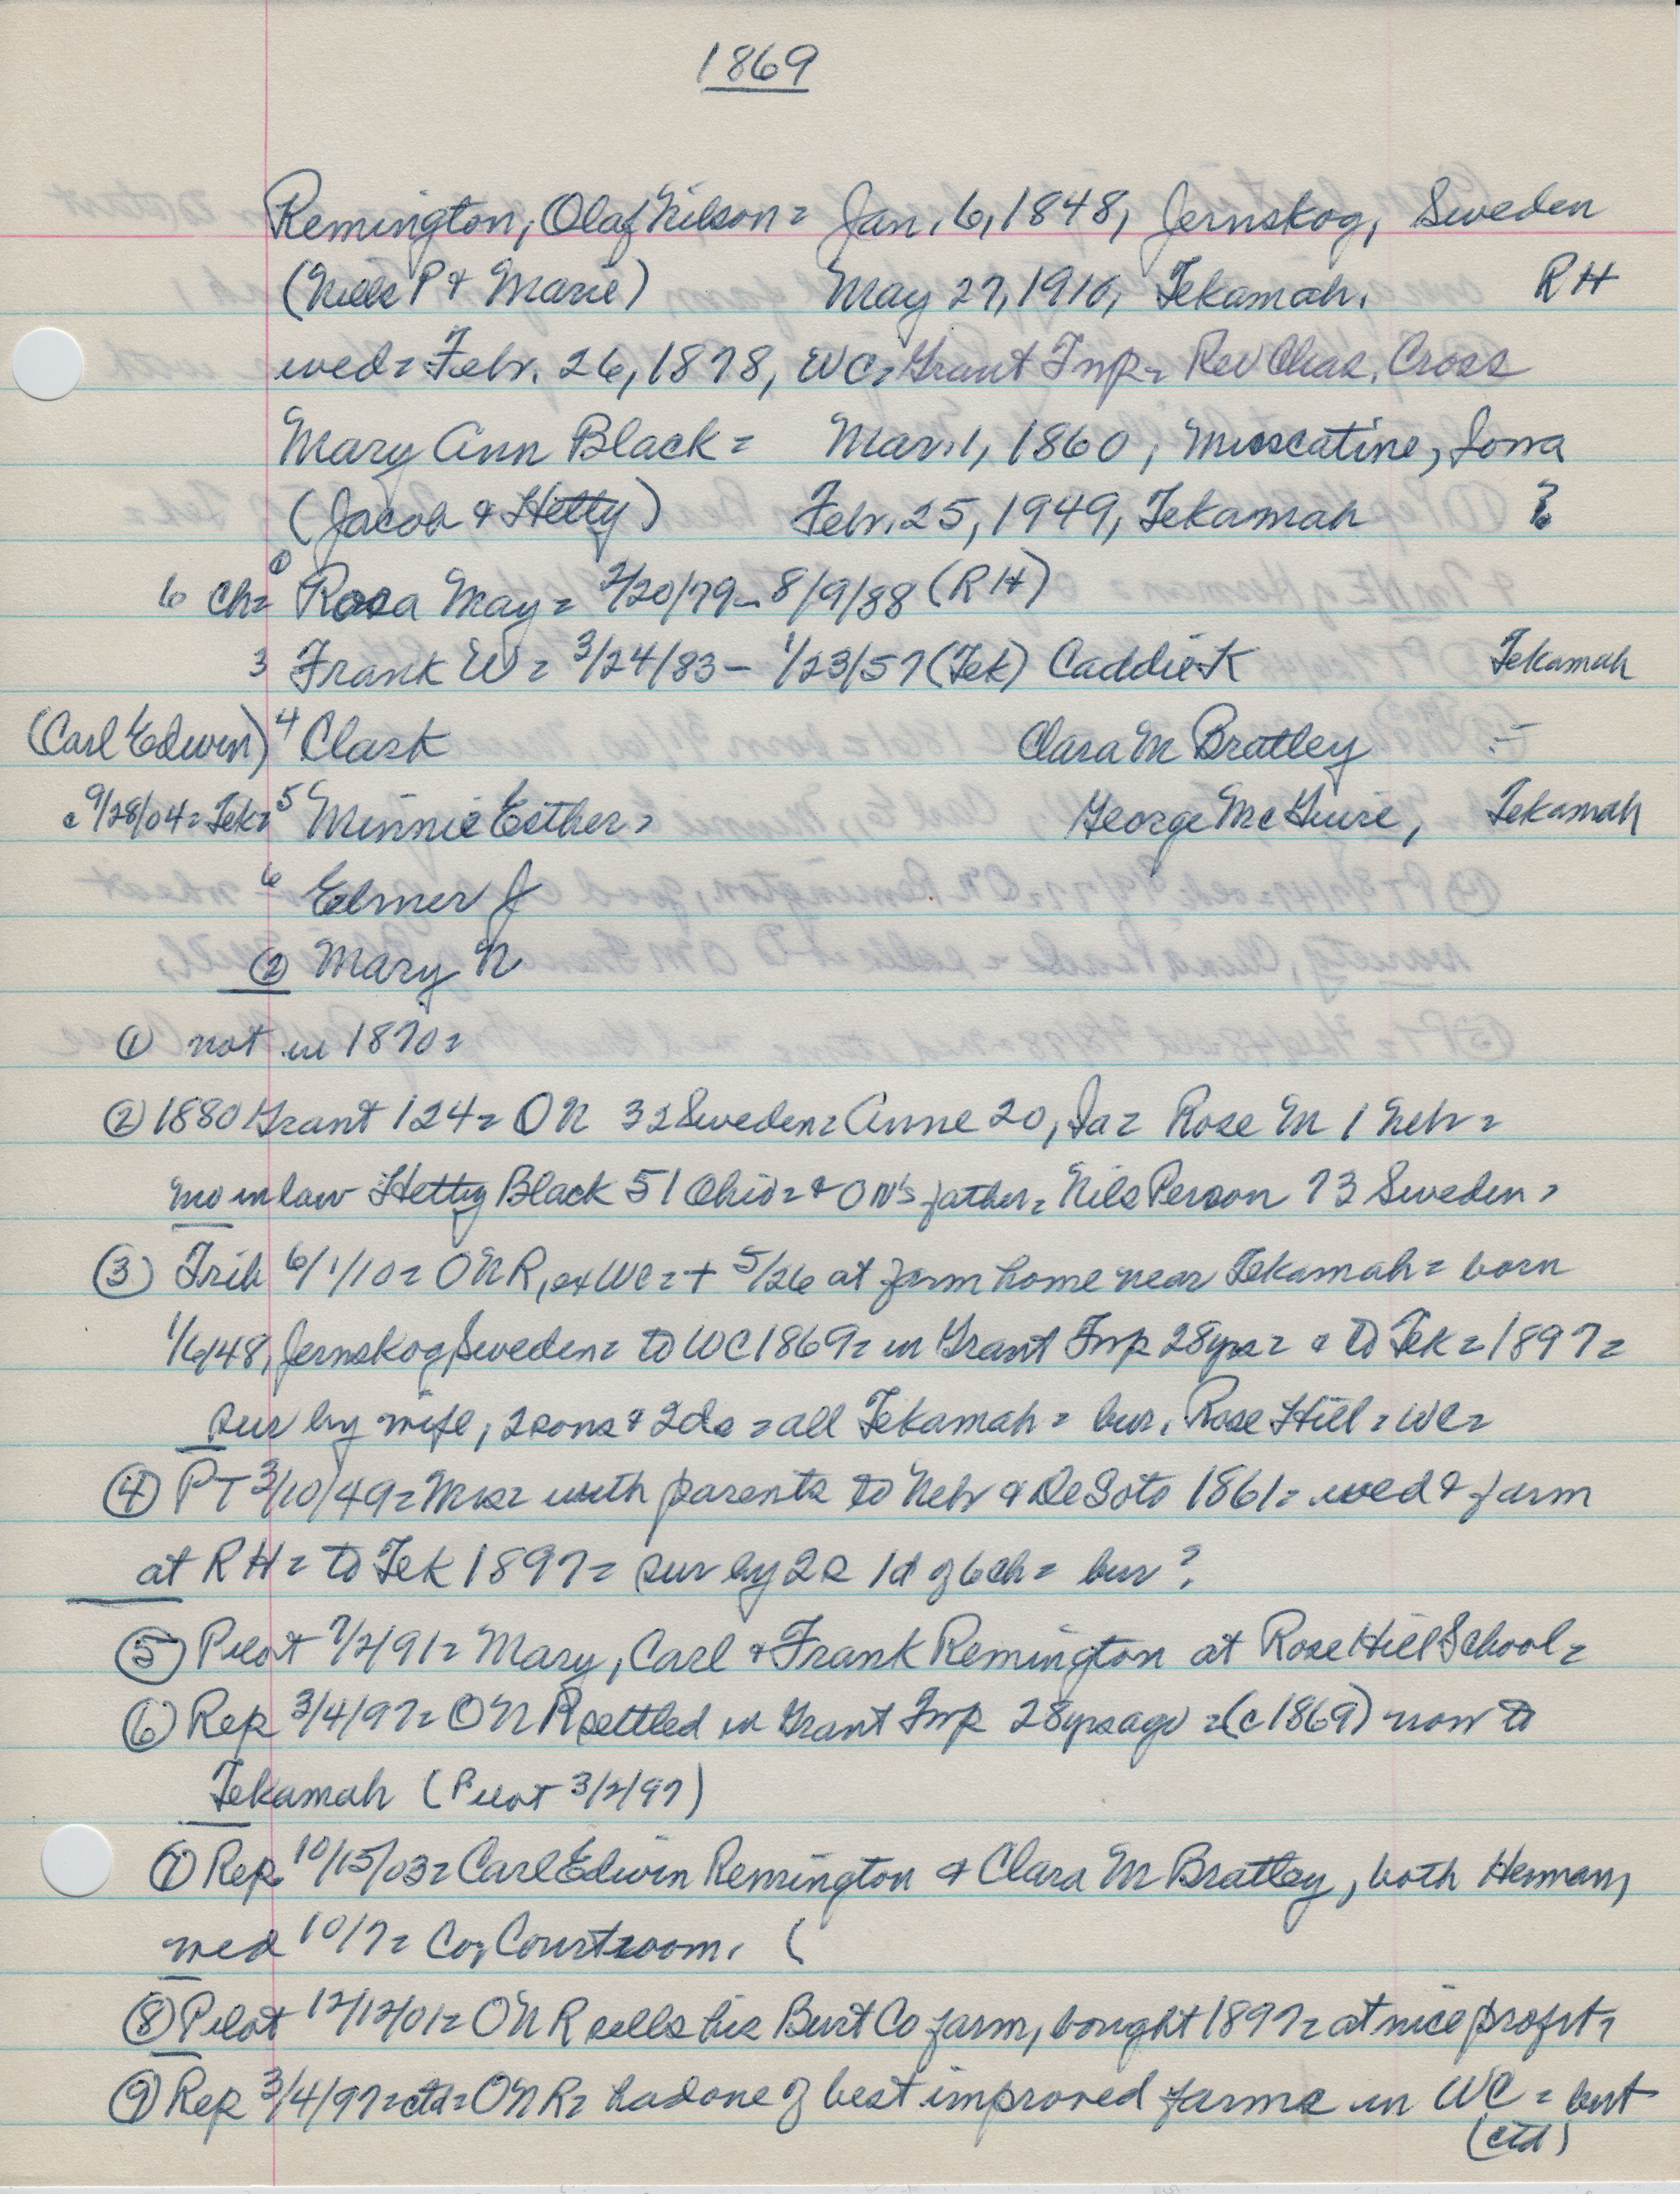 1869
Remington, Olaf Nilson = Jan. 6, 1848, Jernskog, Sweden
(Nills P & Marie) May 27, 1910, Tekamah. RH
wed = Febr. 26, 1878, WC = Grant Twp = Rev Chas. Cross
Mary Ann Black = Mar. 1, 1860, Muscatine, Iowa
(Jacob & Hetty) Febr. 25, 1949, Tekamah ?
6 ch = ① Rosa May = 2/20/79 - 8/9/88 (RH)
3 Frank W = 3/24/83 - 1/23/57 (Tek) Caddie K Tekamah
(Carl Edwin) 4 Clark Clara M Bratley -
c 9/28/04 = Tek = 5 Minnie Esther = George McGuire, Tekamah
6 Elmer J
② Mary N
① not in 1870 =
② 1880 Grant 124 = ON 32 Sweden = Anne 20, Ia = Rose M 1 Nebr =
mo in law Hetty Black 51 Ohio = & ON's father = Nils Person 73 Sweden =
③ Trib 6/1/10 = ONR, ex WC = + 5/26 at farm home near Tekamah = born
1/6/48, Jernskog, Sweden = to WC 1869 = in Grant Twp 28 yrs = & to Tek = 1897 =
sur by wife, 2 sons & 2 ds = all Tekamah = bur. Rose Hill = WC =
④ PT 3/10/49 = Mrs = with parents to Nebr & DeSoto 1861 = wed & farm
at RH = to Tek 1897 = sur by 2s 1d of 6 ch = bur ?
⑤ Pilot 7/2/91 = Mary, Carl & Frank Remington at Rose Hill School =
⑥ Rep 3/4/97 = ON R settled in Grant Twp 28 yrs ago = (c 1869) now to
Tekamah (Pilot 3/2/97)
⑦ Rep. 10/15/03 = Carl Edwin Remington & Clara M Bratley, both Herman,
wed 10/7 = Co. Courtroom. (
⑧ Pilot 12/12/01 = ON R sells his Burt Co farm, bought 1897 = at nice profit =
⑨ Rep 3/4/97 = ctd = ON R = had one of best improved farms in WC = but
(ctd)